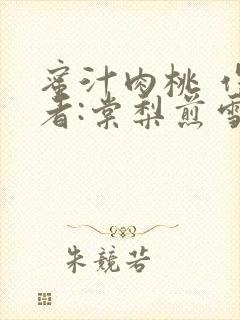 蜜汁肉桃 作
者:棠梨煎雪
朱競若